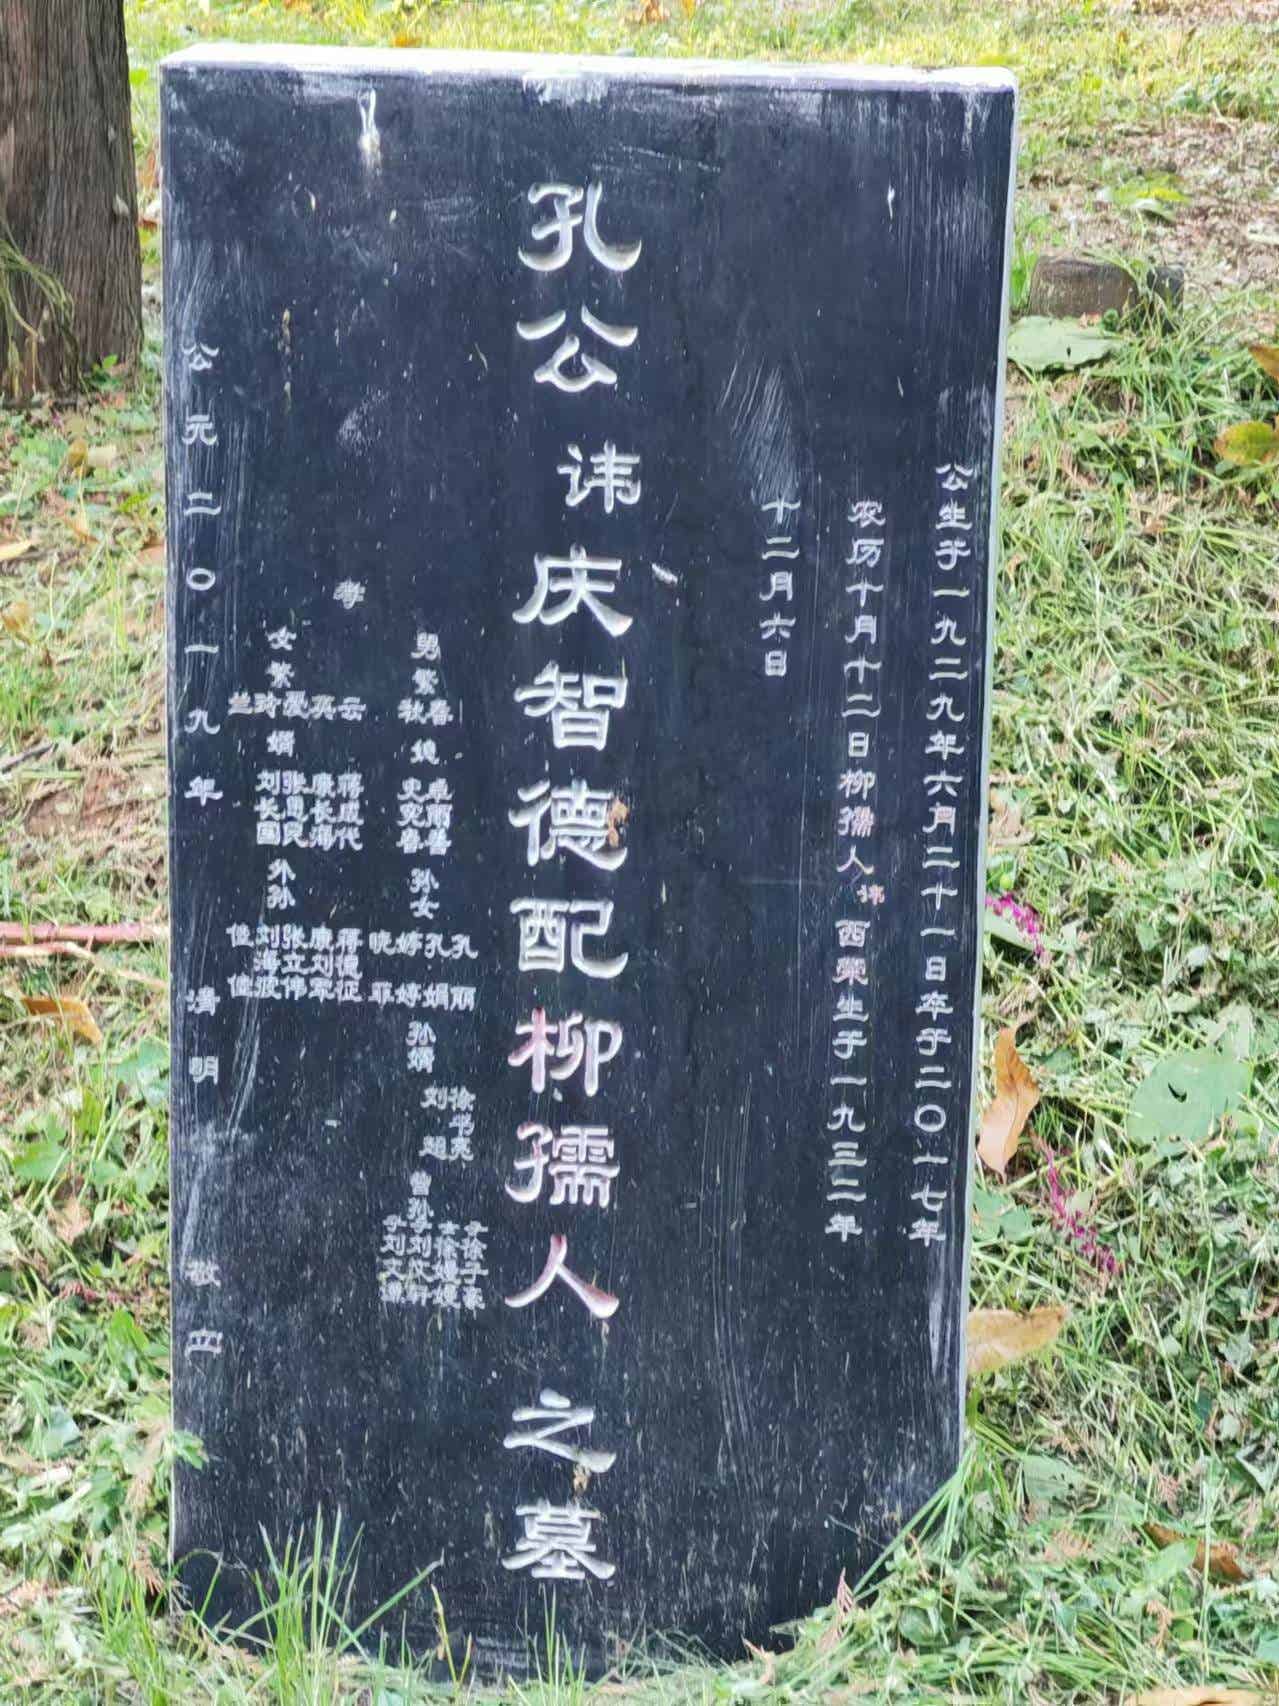 公生于一九二九年六月二十一日卒于二〇一七年
农历十月十二日柳孺人讳西荣生于一九三二年
十二月六日
孔公讳庆智德配柳孺人之墓
孝
男繁春秋
媳
孙女
孔丽
孔娟
婷婷
晓菲
孙婿
徐书亮
刘超
曾孙
女繁云英爱玲兰
婿
蒋成代
康长海
张思民
刘长国
外孙
蒋德征
康刘军
张立伟
刘海波
佳佳
公元二〇一九年清明敬立